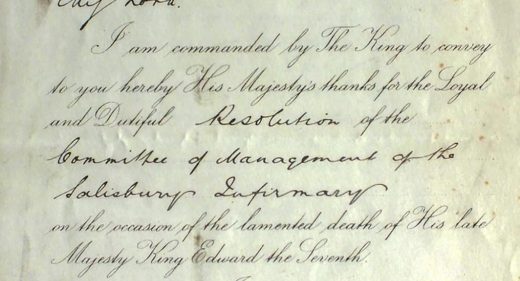 My Lord.
I am commanded by The King to convey
to you hereby His Majesty's thanks for the Loyal
and Dutiful Resolution of the
Committee of Management of the
Salisbury Infirmary
on the occasion of the lamented death of His late
Majesty King Edward the Seventh.